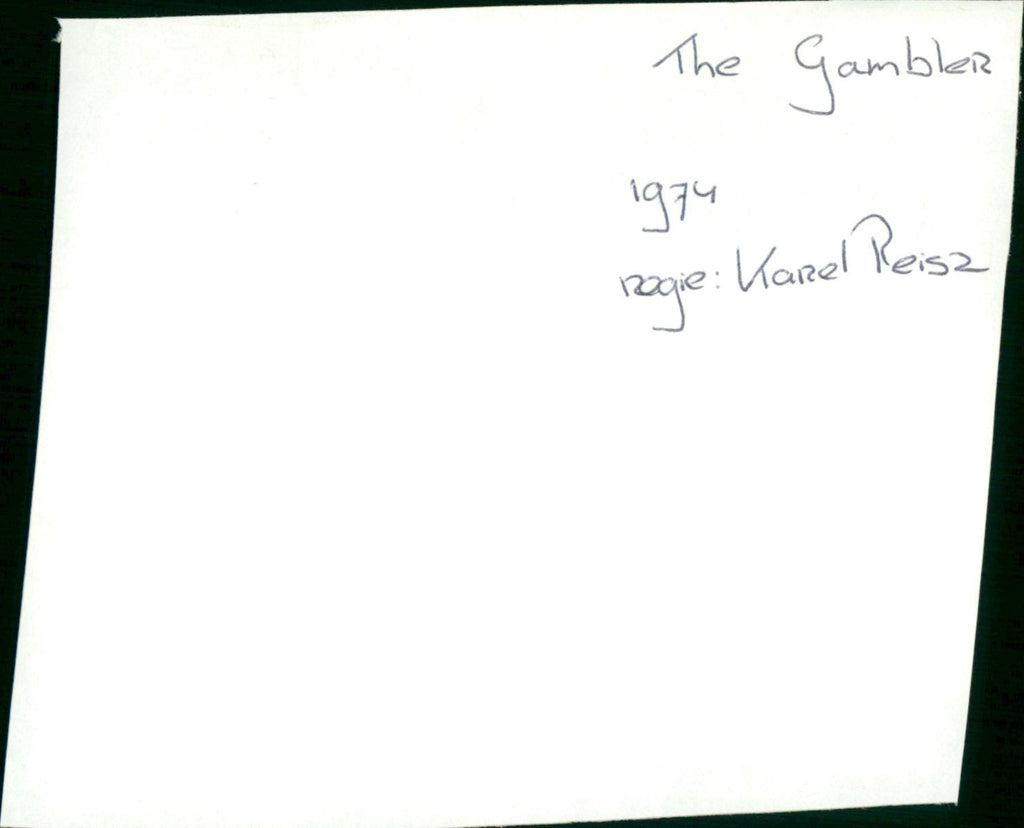 The Gambler
1974
regie: Karel Reisz